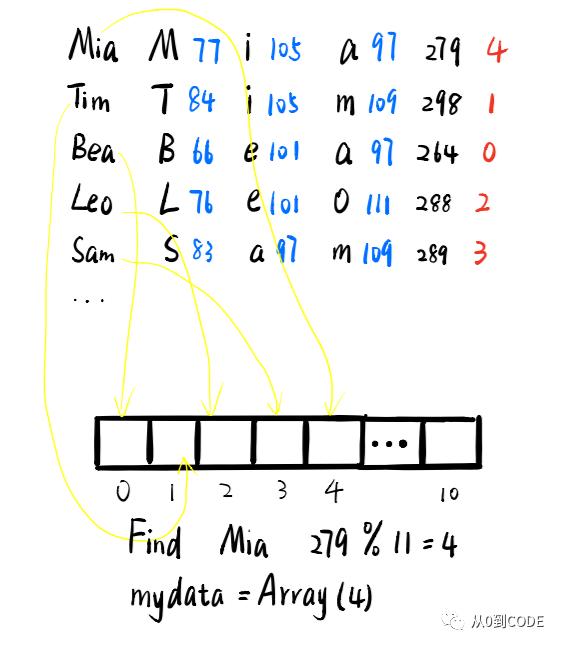 Mia M 77 i 105 a 97 279 4
Tim T 84 i 105 m 109 298 1
Bea B 66 e 101 a 97 264 0
Leo L 76 e 101 O 111 288 2
Sam S 83 a 97 m 109 289 3
...
...
0 1 2 3 4 10
Find Mia 279 % 11 = 4
mydata = Array (4)
从0到CODE